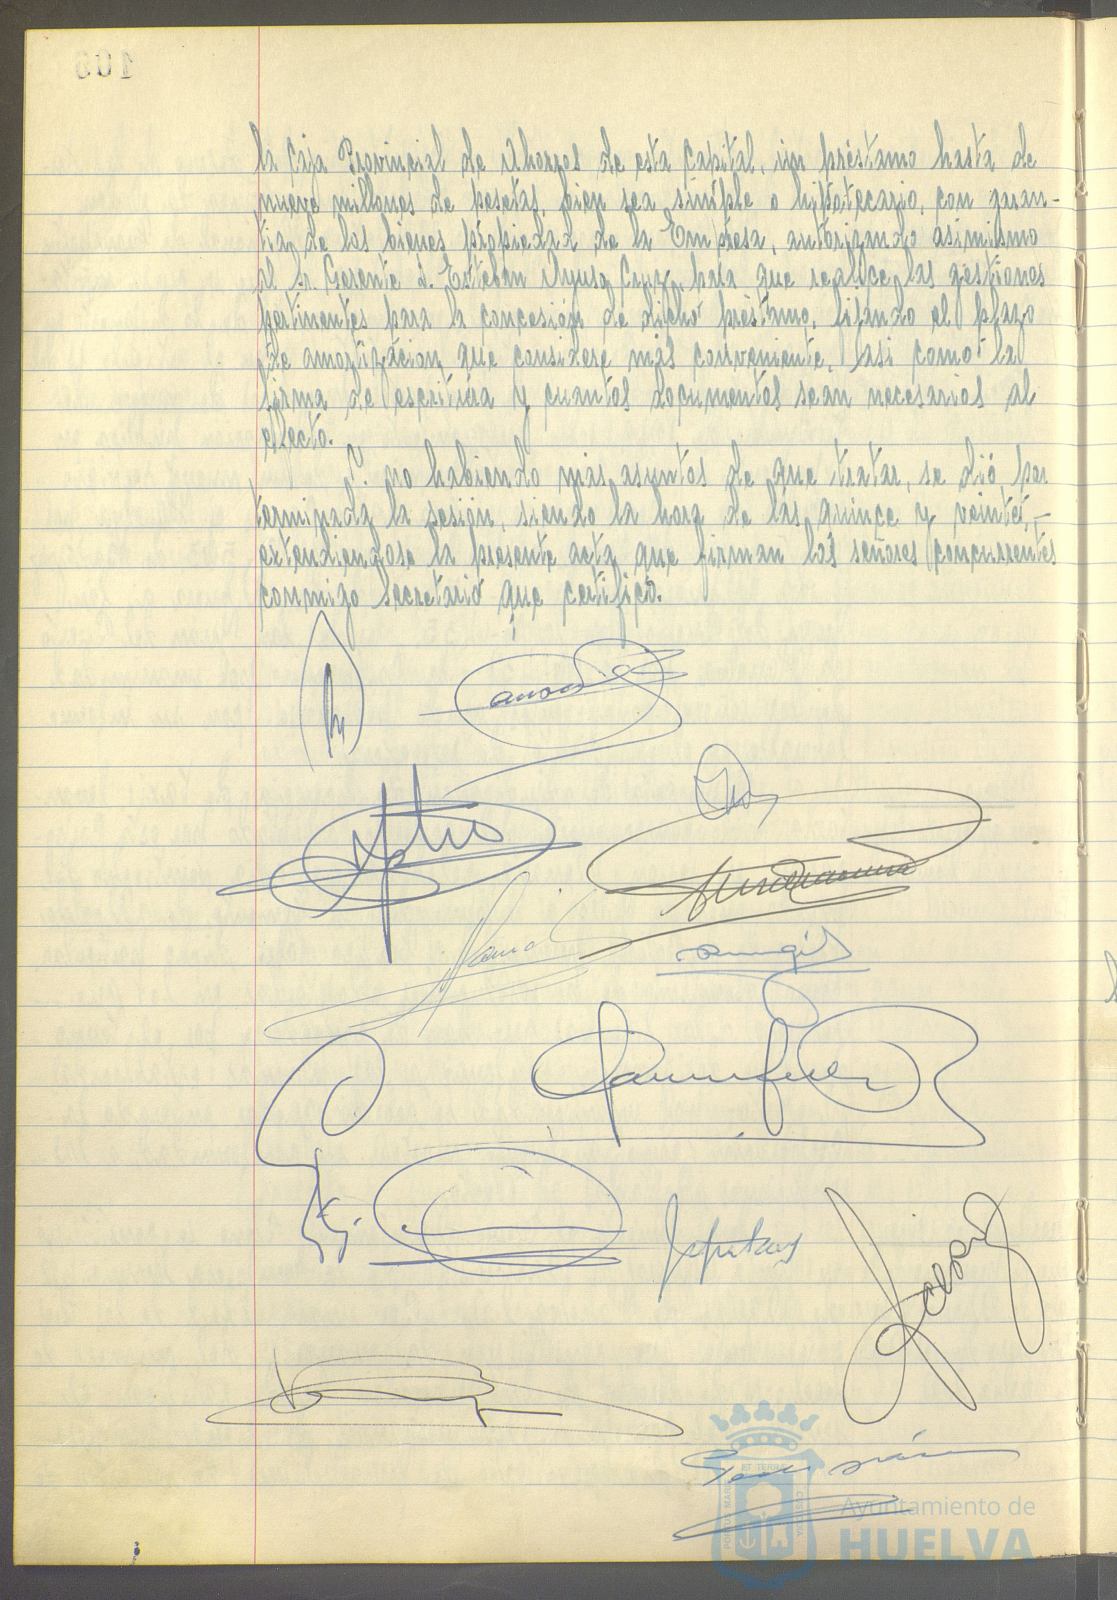 la Caja Provincial de Ahorros de esta Capital, un préstamo hasta de
nueve millones de pesetas, bien sea simple o hipotecario, con garan-
tia de los bienes propiedad de la Empresa, autorizando asimismo
al Sr. Gerente D. Esteban Ayuso Cruz, para que realice las gestiones
pertinentes para la concesión de dicho préstamo, fijando el plazo
de amortización que considere más conveniente, así como la
firma de escritura y cuantos documentos sean necesarios al
efecto.
Y no habiendo más asuntos de que tratar, se dió por
terminada la sesión, siendo la hora de las quince y veinte,-
extendiendose la presente acta que firman los señores concurrentes
conmigo Secretario que certifico.
Ayuntamiento de
HUELVA